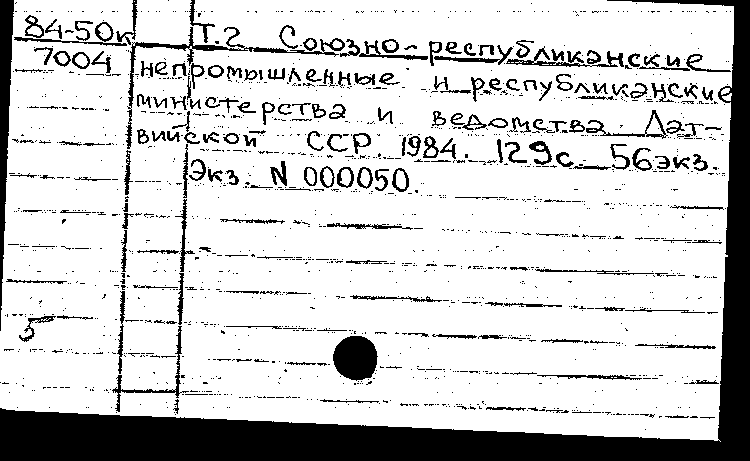 84-50к Т.2 Союзно-республиканские
7004 непромышленные и республиканские
министерства и ведомства Лат-
вийской ССР. 1984. 129с. 56экз.
Экз. N 000050.
5